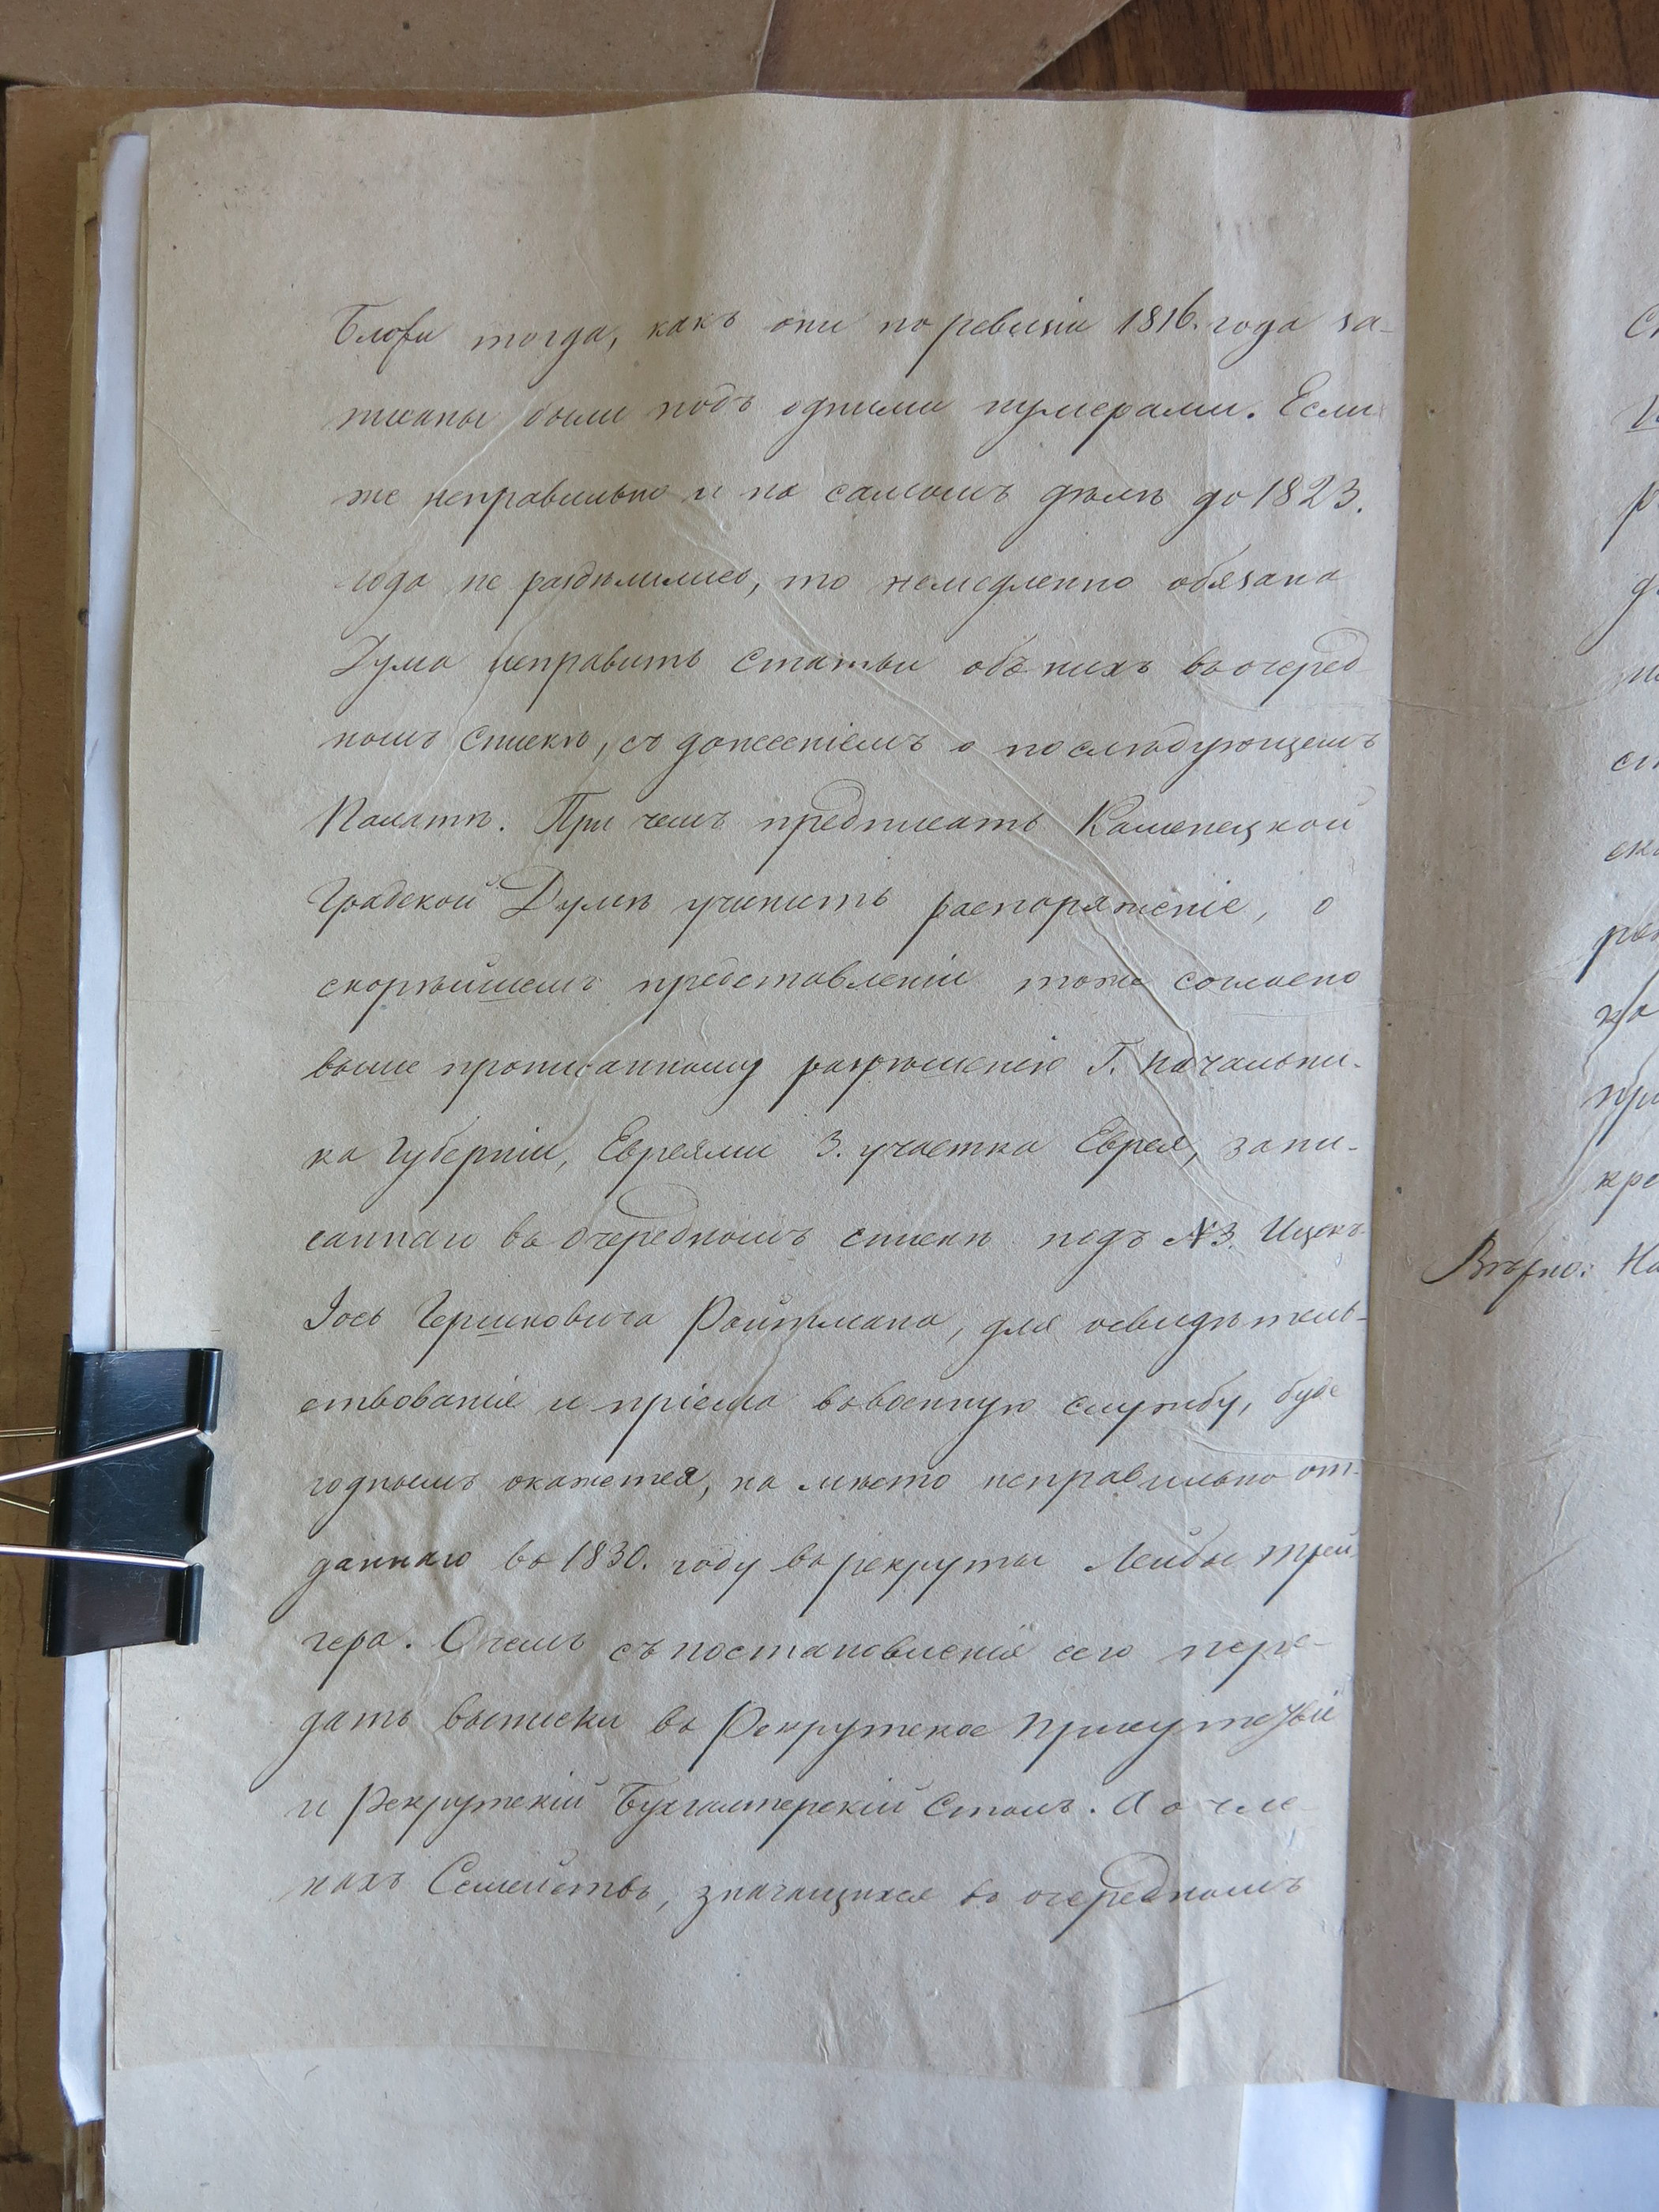 тогда, какъ они по ревизіи 1816. года за-
писаны были подъ одними нумерами. Если
же неправильно и на самомъ дѣлѣ до 1823.
года не раздѣлились, то немедленно обязана
Дума исправить статьи объ нихъ въ очеред
номъ спискѣ, съ донесеніемъ о послѣдующемъ
Палатѣ. При чемъ предписать Каменецкой
Градской Думѣ учинить распоряженіе, о
скорѣйшемъ представленіи тоже согласно
выше прописанному разрѣшенію Г. Начальни-
ка Губерніи, Евреями 3. участка Еврея, запи-
саннаго въ Очередномъ спискѣ подъ №3. Ицекъ
Іось Гершковича Ройтмана, для освидѣтель-
ствованія и пріема въ военную службу, буде
годнымъ окажется, на мѣсто неправильно от-
даннаго въ 1830. году въ рекруты Лейбы Трей
гера. О чемъ съ постановленія сего пере-
дать выписки въ Рекрутское Присутствіе
и Рекрутскій Бухгалтерскій Столъ. А о чле
нахъ Семействъ, значащихся въ очередномъ
Вѣрно: